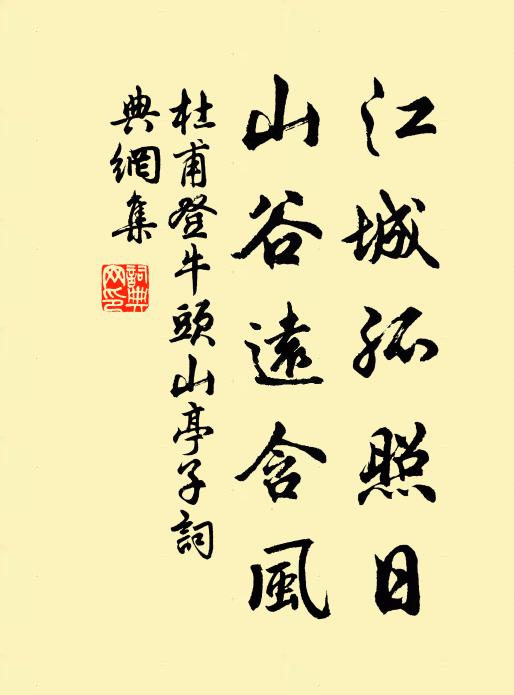 江城孤照日
山谷遠含風
杜甫登牛頭山亭子詞
典網集
詞典網印